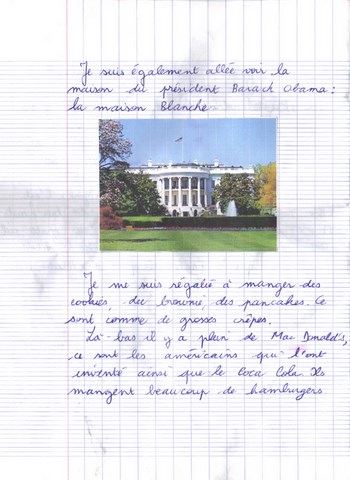 Je suis également allée voir la
maison du président Barack Obama :
la maison Blanche
Je me suis régalié à manger des
cookies du brownie, des pancakes. Ce
sont comme de grosses crêpes.
Là-bas il y a plein de Mac Donald's,
ce sont les américains qui l'ont
inventé ainsi que le Coca Cola. Ils
mangent beaucoup de hamburgers